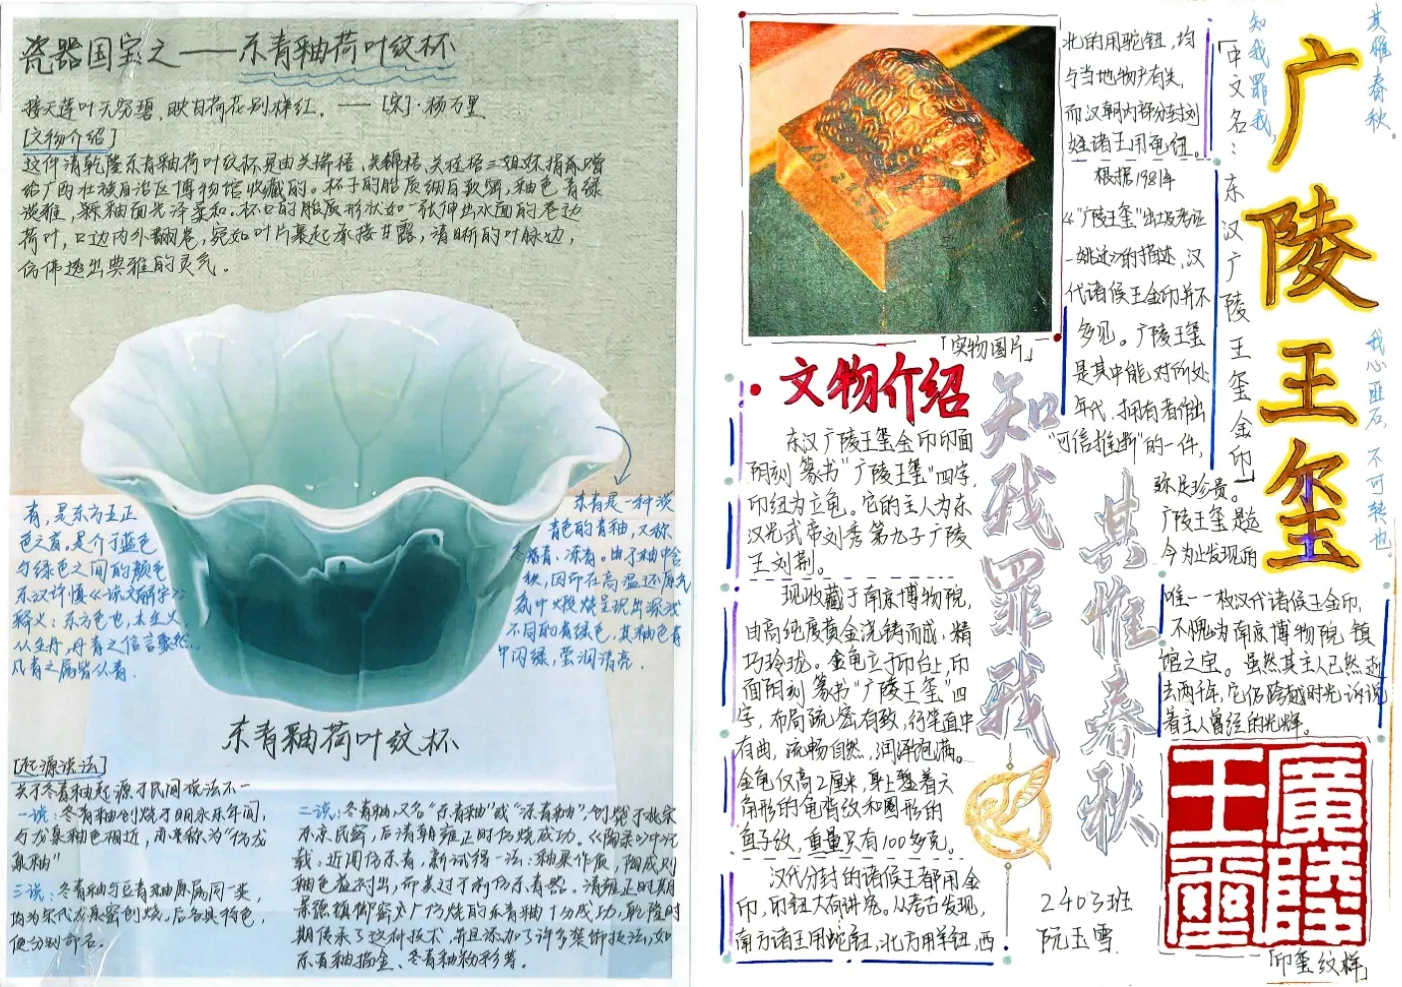 瓷器国宝之——东青釉荷叶纹杯
接天莲叶无穷碧,映日荷花别样红。——[宋]·杨万里
[文物介绍]
这件清乾隆东青釉荷叶纹杯是由关瑞梧、关
给广西壮族自治区博物馆收藏的。杯子的胎质细白致密,釉色青绿
淡雅,釉面光泽柔和。杯口的胎质形状如一张伸出水面的卷边
荷叶,口边内外翻卷,宛如叶片裹起承接甘露,清晰的叶脉边,
仿佛透出典雅的灵气。
青,是东方五正
色之首。是介于蓝色
与绿色之间的颜色
东汉许慎《说文解字》
释义:东方色也,木生火,
从生丹,丹青之信言象然,
凡青之属皆从青.
东青是一种淡
青色的青釉,又称
冬青、冻青。由于釉中含
铁,因而在高温还原气
氛中煅烧呈现出深浅
不同的青绿色,其釉色青
中闪绿,莹润清亮.
东青釉荷叶纹杯
[起源谈法]
关于冬青釉起源于民间说法不一
一说:冬青釉创烧于明永乐年间,
与龙泉釉色相近,亦常称为“仿龙
泉釉”
三说:冬青釉与豆青釉原属同一类,
均为宋代龙泉窑创烧,后各具特色,
便分别命名。
二说:冬青釉,又名“东青釉”或“冻青釉”,创烧于北宋
东京民窑,后清朝雍正时仿烧成功。《陶录》中记
载:近周仿东青,新试得一法:釉果作质,陶成则
釉色益衬出,而美过于前仿东青器。清雍正时期
景德镇御窑厂仿烧的东青釉十分成功,乾隆时
期传承了这种技术,并且添加了许多装饰技法,如
东青釉描金、冬青釉粉彩等。
「实物图片」
文物介绍
东汉广陵王玺金印印面
阴刻篆书“广陵王玺”四字,
印纽为立龟。它的主人为东
汉光武帝刘秀第九子广陵
王刘荆。
现收藏于南京博物院,
由高纯度黄金浇铸而成,精
巧玲珑。金龟立于印台上,印
面阴刻篆书“广陵王玺”四
字,布局疏密有致,行笔直中
有曲,流畅自然,润泽饱满。
金龟仅高2厘米,身上錾着六
角形的龟背纹和圆形的
鱼子纹,重量只有100多克。
汉代分封的诸侯王都用金
印,印钮大有讲究。从考古发现,
南方诸王用蛇钮,北方用羊钮,西
北的用驼钮,均
与当地物产有关,
而汉朝内部分封刘
姓诸王用龟纽。
根据1981年
《“广陵王玺”出土及考证
-姚迁》的描述,汉
代诸侯王金印并不
多见。广陵王玺
是其中能对所处
年代、拥有者作出
“可信推断”的一件,
弥足珍贵。
广陵王玺是迄
今为止发现的
唯一一枚汉代诸侯王金印,
不愧为南京博物院镇
馆之宝。虽然其主人已然逝
去两千年,它仍跨越时光诉说
着主人曾经的光辉。
知我罪我
其惟春秋
「中文名:东汉广陵王玺金印」
知我罪我,
其惟春秋。
广陵王玺
我心匪石,不可转也。
2403班
阮玉雪
廣陵
王璽
「印玺纹样」